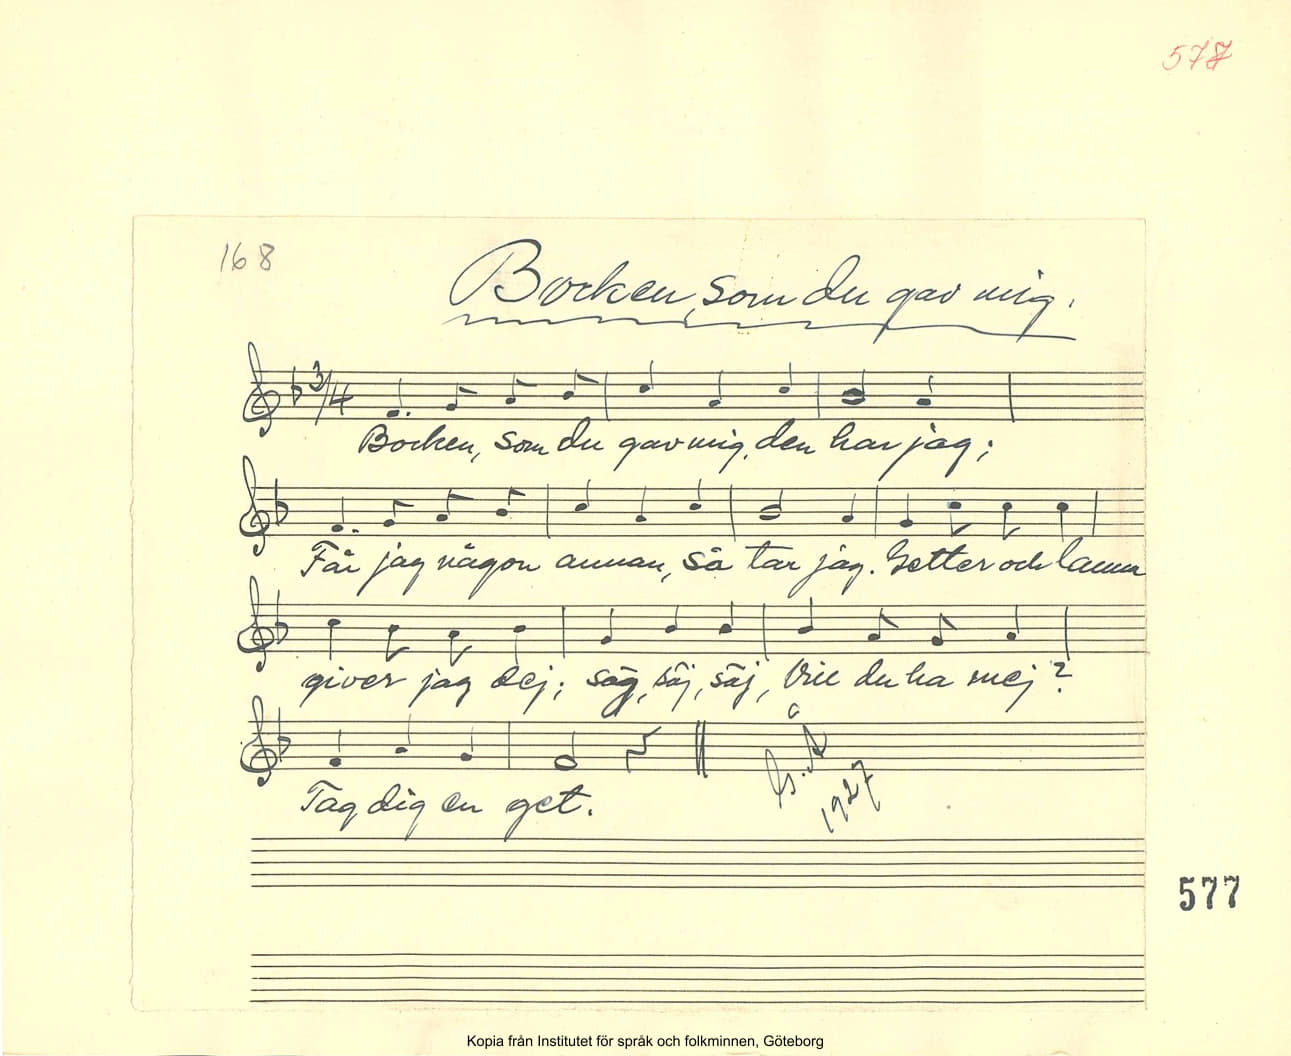 577
168
Bocken, som du gav mig.
3/4
Bocken, som du gav mig, den har jag;
Får jag någon annan, så tar jag. Getter och lamm
giver jag dej; säg, säj, säj, Vill du ha mej?
Tag dig en get.
1927
577
Kopia från Institutet för språk och folkminnen, Göteborg